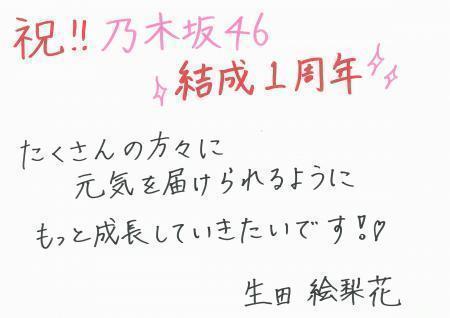 祝!!乃木坂46
結成1周年
たくさんの方々に
元気を届けられるように
もっと成長していきたいです!♡
生田 絵梨花